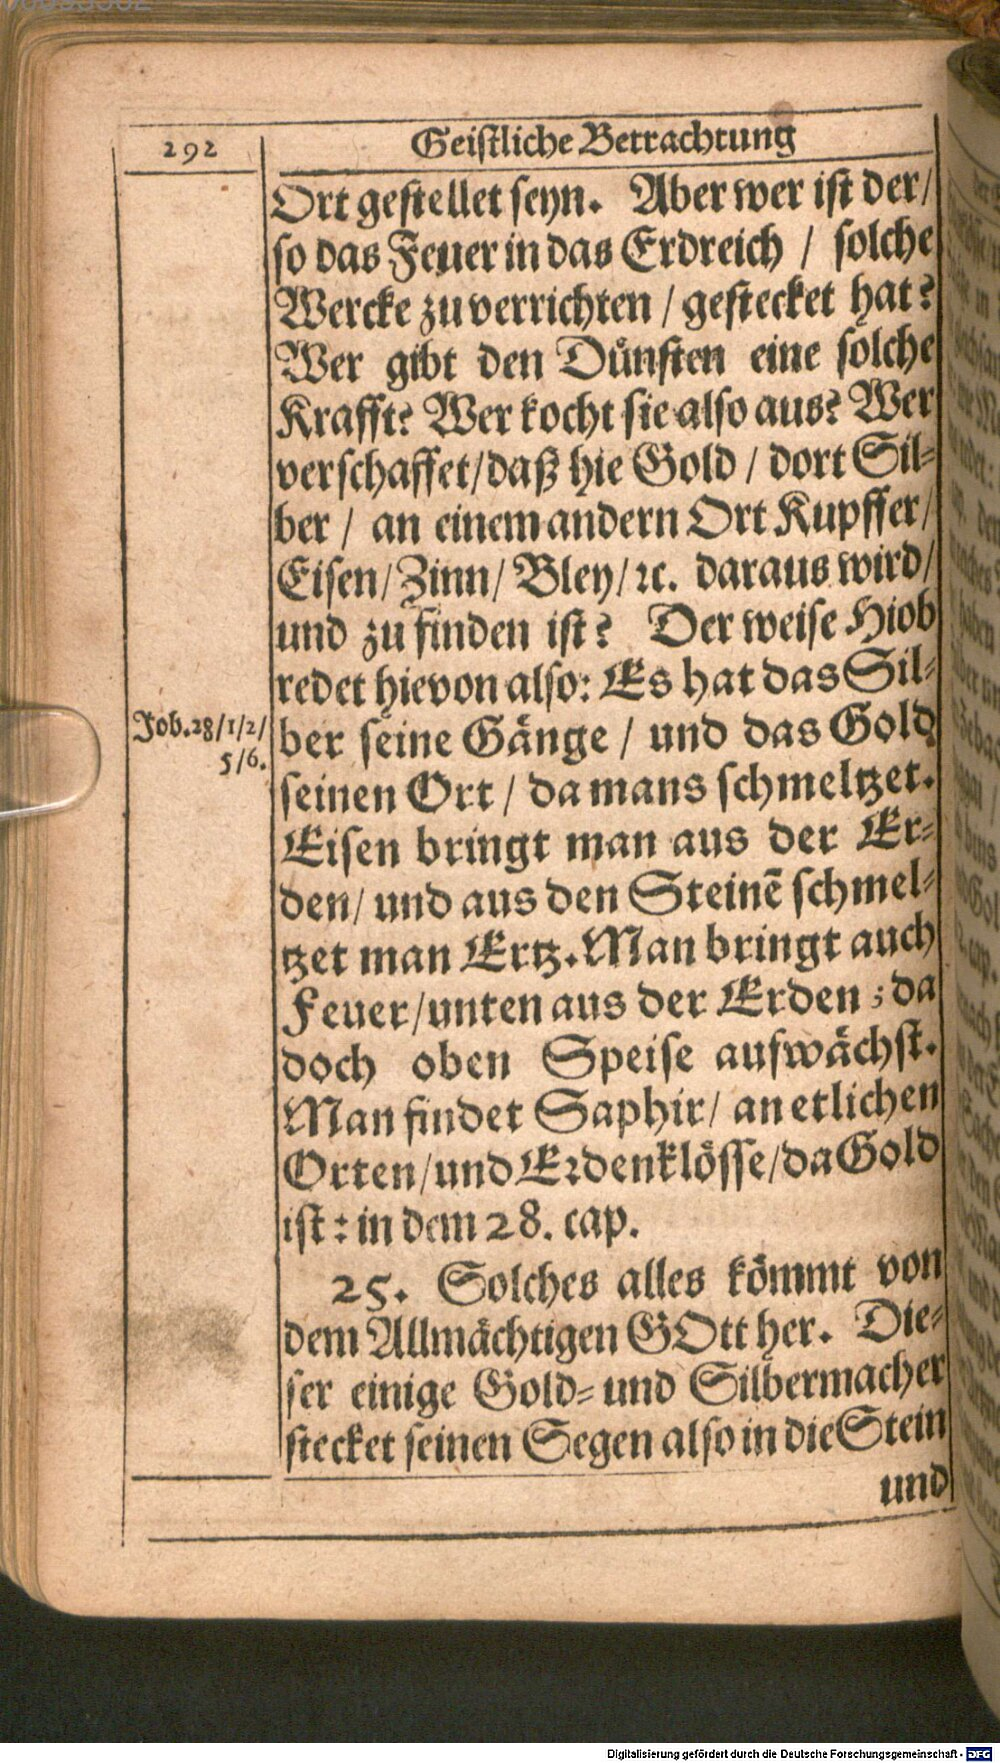 292
Geistliche Betrachtung
Ort gestellet seyn. Aber wer ist der/
so das Feuer in das Erdreich / solche
Wercke zu verrichten / gestecket hat?
Wer gibt den Dünsten eine solche
Krafft? Wer kocht sie also aus? Wer
verschaffet/ daß hie Gold / dort Sil-
ber / an einem andern Ort Kupffer/
Eisen/ Zinn/ Bley/ ꝛc. daraus wird/
und zu finden ist? Der weise Hiob
redet hievon also: Es hat das Sil-
Job. 28/1/2/
5/6.
ber seine Gänge / und das Gold
seinen Ort / da mans schmeltzet.
Eisen bringt man aus der Er-
den/ und aus den Steinē schmel-
tzet man Ertz. Man bringt auch
Feuer/ unten aus der Erden ; da
doch oben Speise aufwächst.
Man findet Saphir/ an etlichen
Orten/ und Erdenklösse/ da Gold
ist : in dem 28. cap.
25. Solches alles kömmt von
dem Allmächtigen GOtt her. Die-
ser einige Gold- und Silbermacher
stecket seinen Segen also in die Stein
und
Digitalisierung gefördert durch die Deutsche Forschungsgemeinschaft - DFG